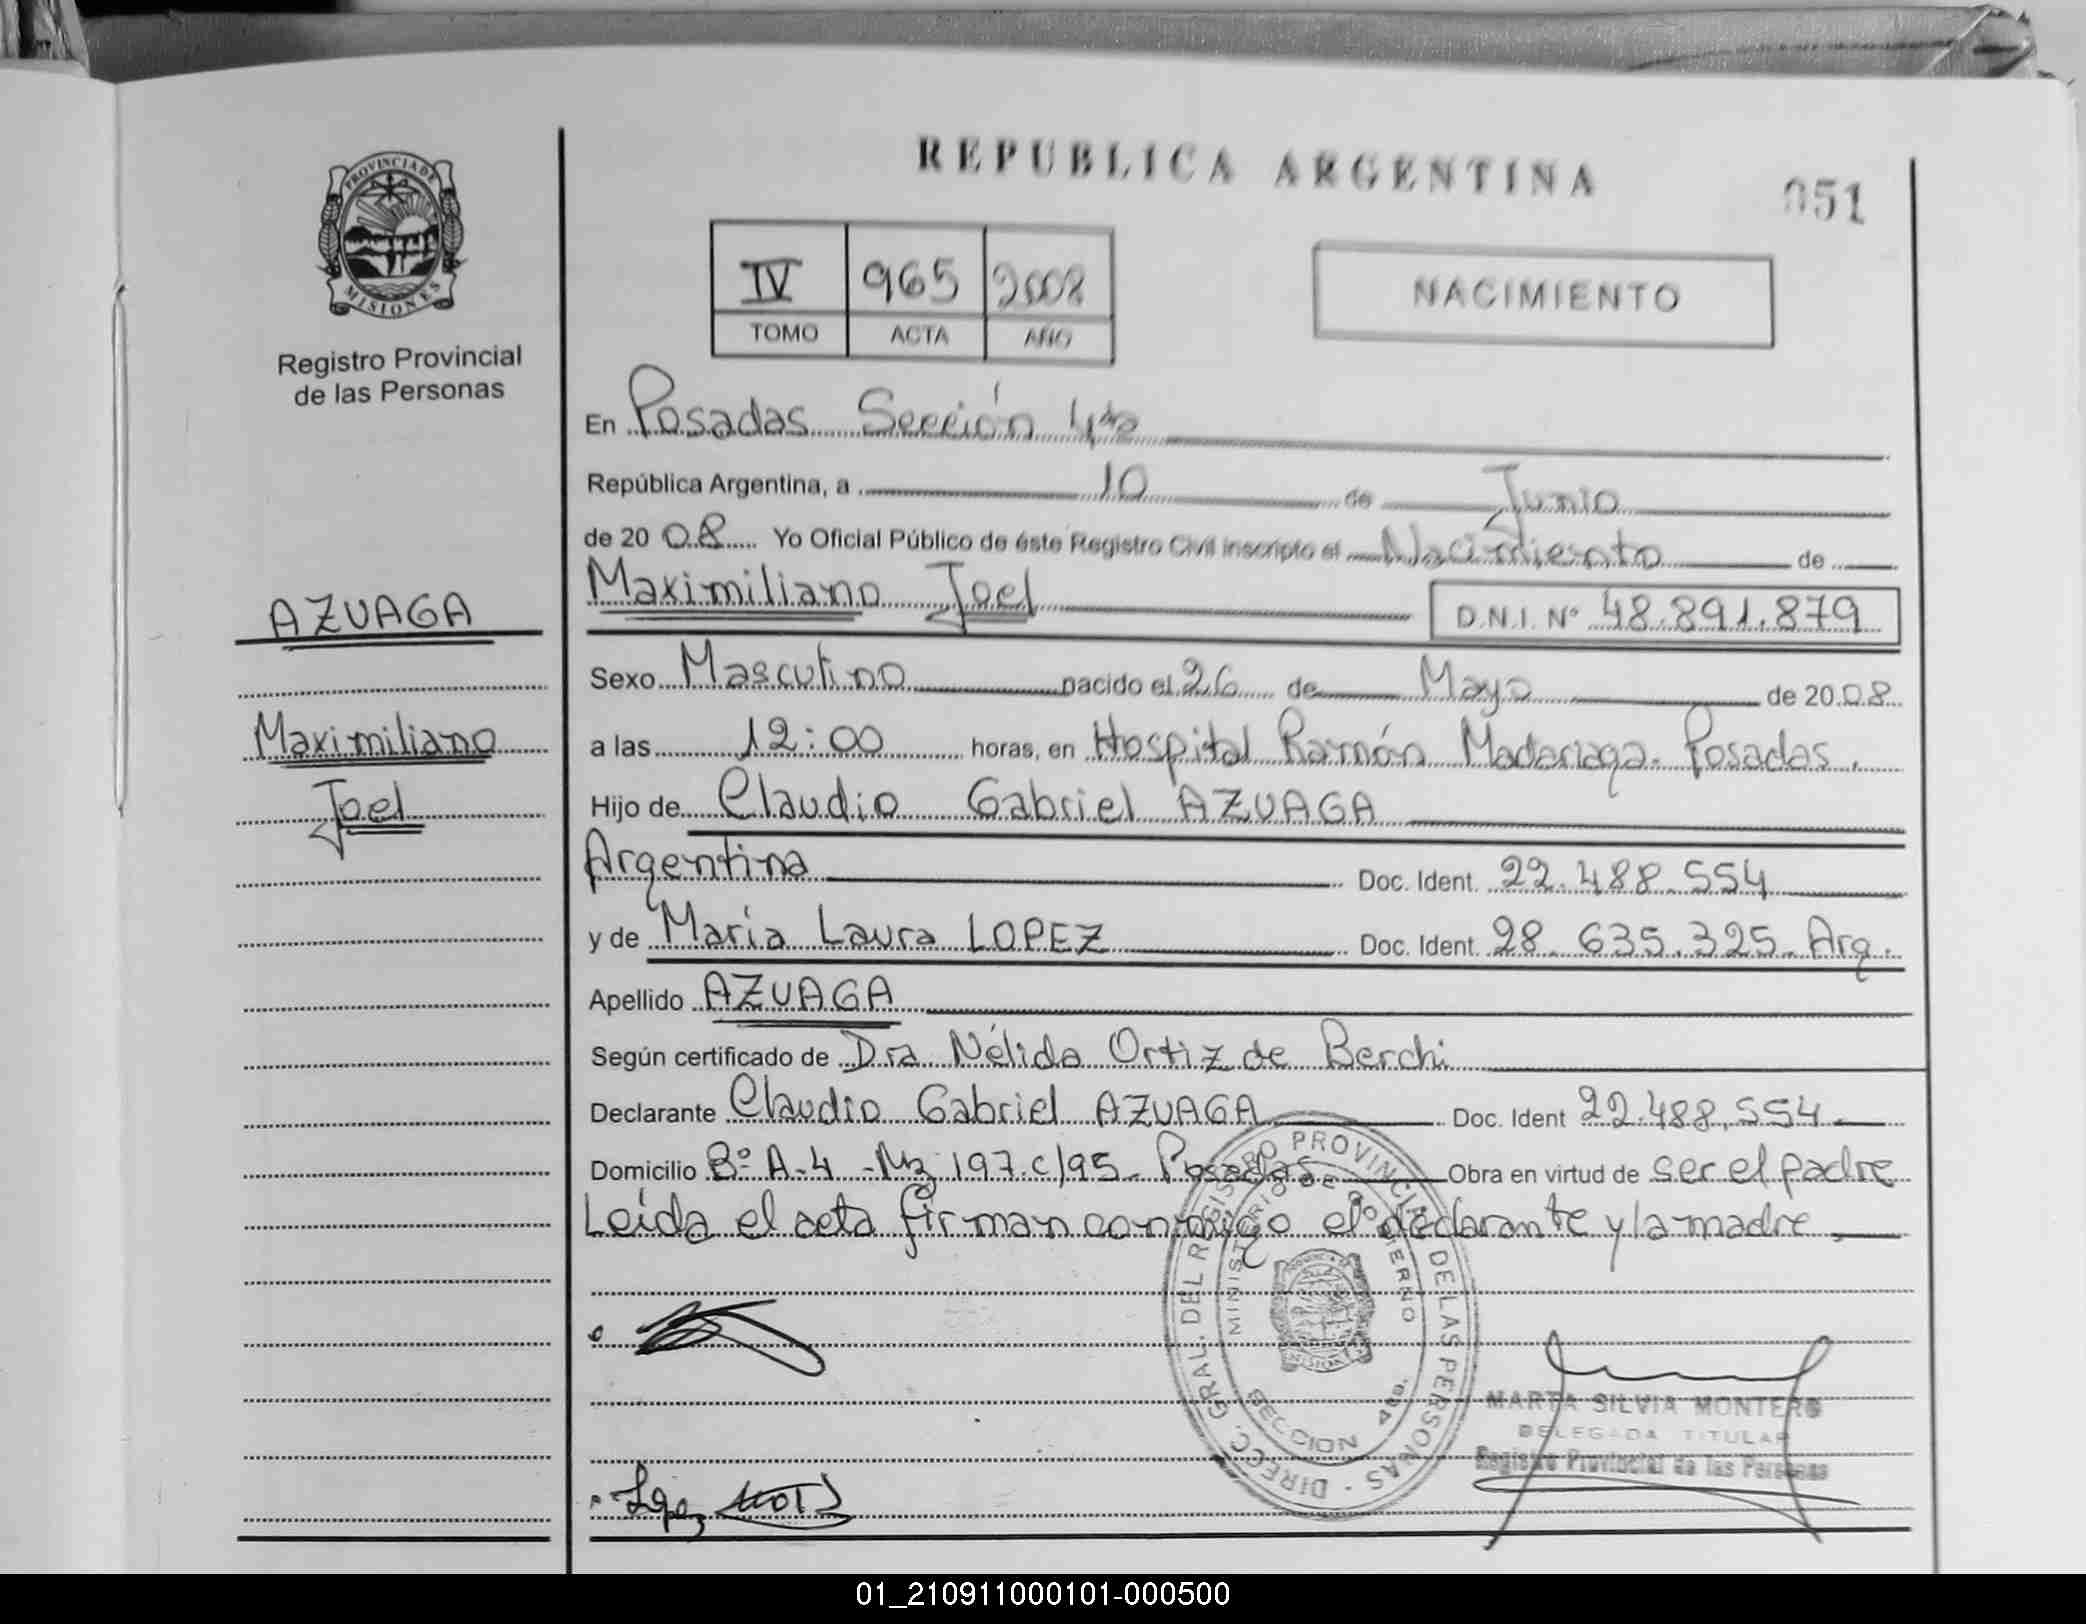 REPUBLICA ARGENTINA
051
PROVINCIA DE MISIONES
Registro Provincial
de las Personas
IV 965 2008
TOMO ACTA AÑO
NACIMIENTO
En Posadas Sección 4ta
República Argentina, a 10 de Junio
de 2008 Yo Oficial Público de éste Registro Civil inscripto el Nacimiento de
Maximiliano Joel D.N.I. Nº 48.891.879
AZUAGA
Maximiliano
Joel
Sexo Masculino nacido el 26 de Mayo de 2008
a las 12:00 horas, en Hospital Ramón Madariaga. Posadas.
Hijo de Claudio Gabriel AZUAGA
Argentina Doc. Ident. 22.488.554
y de María Laura LOPEZ Doc. Ident. 28.635.325 Arg.
Apellido AZUAGA
Según certificado de Dra Nélida Ortiz de Berchi
Declarante Claudio Gabriel AZUAGA Doc. Ident 22.488.554
Domicilio Bº A-4 -Mz 197.c/95- Posadas Obra en virtud de ser el padre
Leída el acta firman conmigo el declarante y la madre
DIRECC. GRAL. DEL REGISTRO PROVINCIAL DE LAS PERSONAS
MINISTERIO DE GOBIERNO
SECCION 4ta.
MARTA SILVIA MONTERO
DELEGADA TITULAR
Registro Provincial de las Personas
López
01_210911000101-000500